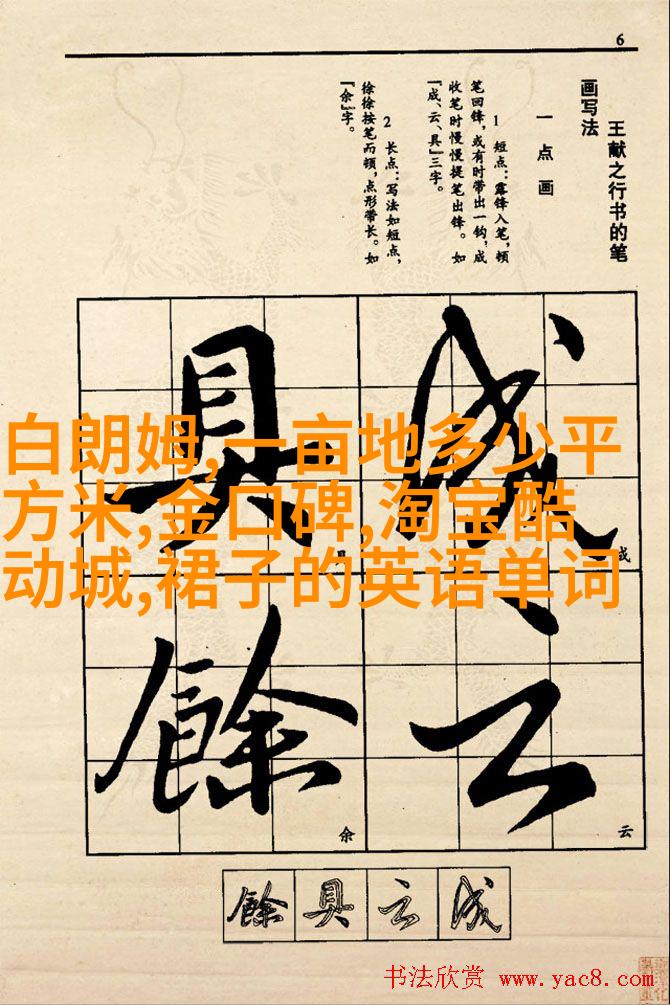 6
王献之行书的笔
画写法
一 点 画
1 短点：露锋入笔，顿
笔回锋，或有时带出一钩，成
收笔时慢慢提笔出锋。如
“成、云、具”三字。
2 长点：写法如短点，
徐徐按笔而顿，点形带长。如
“余”字。
成
具
成
具
白朗姆,一亩地多少平
方米,金口碑,淘宝酷
动城,裙子的英语单词
云
餘
云
余
餘
具
云
成
书法欣赏 www.yac8.com